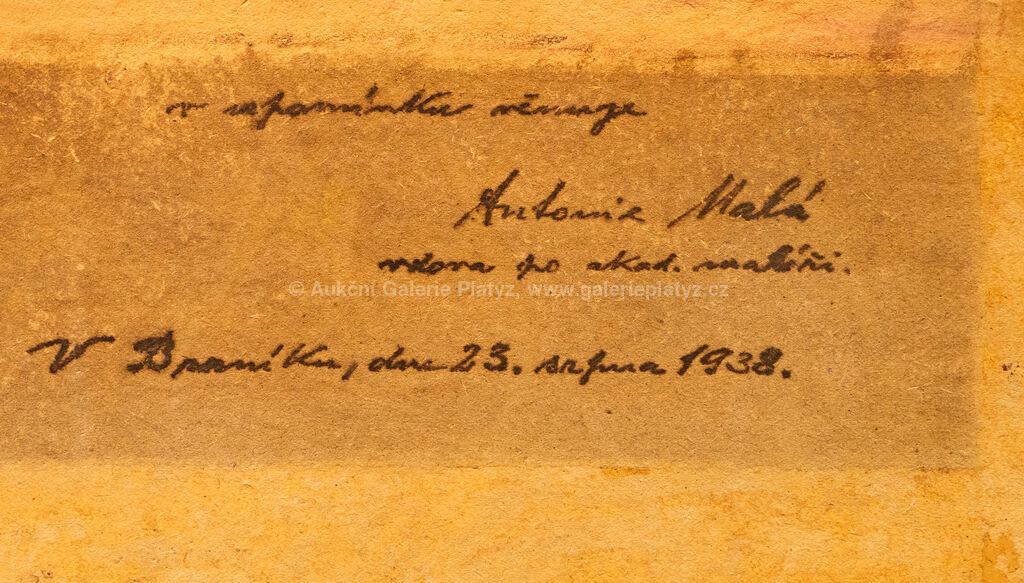 v upomínku věnuje
Antonie Malá
vdova po akad. malíři.
© Aukční Galerie Platýz, www.galerieplatyz.cz
V Braníku, dne 23. srpna 1938.